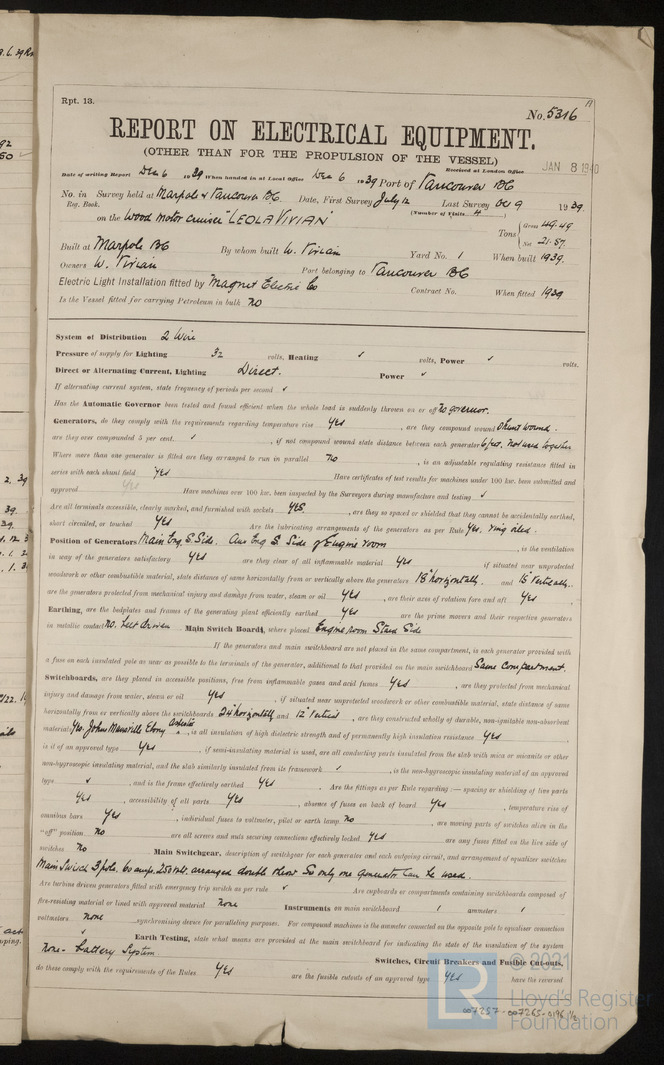 Rpt. 13.
No. 5316
REPORT ON ELECTRICAL EQUIPMENT.
(OTHER THAN FOR THE PROPULSION OF THE VESSEL)
Received at London Office JAN 8 1940
Date of writing Report Dec 6 1939 When handed in at Local Office Dec 6 1939 Port of Vancouver BC
No. in Survey held at Marpole & Vancouver BC. Date, First Survey July 12 Last Survey Oct 9 1939
Reg. Book. (Number of Visits 4)
on the Wood Motor cruiser "LEOLA VIVIAN" Tons { Gross 49.49
Net 21.57
Built at Marpole BC By whom built W. Vivian Yard No. 1 When built 1939.
Owners W. Vivian Port belonging to Vancouver BC
Electric Light Installation fitted by Magnet Electric Co Contract No. When fitted 1939
Is the Vessel fitted for carrying Petroleum in bulk No
System of Distribution 2 Wire
Pressure of supply for Lighting 32 volts, Heating ✓ volts, Power ✓ volts.
Direct or Alternating Current, Lighting Direct. Power ✓
If alternating current system, state frequency of periods per second ✓
Has the Automatic Governor been tested and found efficient when the whole load is suddenly thrown on or off No governor.
Generators, do they comply with the requirements regarding temperature rise Yes, are they compound wound Shunt wound.
are they over compounded 5 per cent. ✓, if not compound wound state distance between each generator 6 feet. Not used together
Where more than one generator is fitted are they arranged to run in parallel No, is an adjustable regulating resistance fitted in
series with each shunt field Yes Have certificates of test results for machines under 100 kw. been submitted and
approved Yes Have machines over 100 kw. been inspected by the Surveyors during manufacture and testing ✓
Are all terminals accessible, clearly marked, and furnished with sockets Yes, are they so spaced or shielded that they cannot be accidentally earthed,
short circuited, or touched Yes Are the lubricating arrangements of the generators as per Rule Yes. ring oiled.
Position of Generators Main Eng S. Side. Aux Eng S. Side of Engine room, is the ventilation
in way of the generators satisfactory Yes are they clear of all inflammable material Yes if situated near unprotected
woodwork or other combustible material, state distance of same horizontally from or vertically above the generators 18" horizontally. and 15" Vertically.
are the generators protected from mechanical injury and damage from water, steam or oil Yes, are their axes of rotation fore and aft Yes
Earthing, are the bedplates and frames of the generating plant efficiently earthed Yes are the prime movers and their respective generators
in metallic contact No. belt driven Main Switch Boards, where placed Engine room Starb Side
If the generators and main switchboard are not placed in the same compartment, is each generator provided with
a fuse on each insulated pole as near as possible to the terminals of the generator, additional to that provided on the main switchboard Same Compartment.
Switchboards, are they placed in accessible positions, free from inflammable gases and acid fumes Yes, are they protected from mechanical
injury and damage from water, steam or oil Yes, if situated near unprotected woodwork or other combustible material, state distance of same
horizontally from or vertically above the switchboards 24" horizontally and 12" Vertical, are they constructed wholly of durable, non-ignitable non-absorbent
materials Yes. Johns Manville Ebony Asbestos, is all insulation of high dielectric strength and of permanently high insulation resistance Yes
is it of an approved type Yes, if semi-insulating material is used, are all conducting parts insulated from the slab with mica or micanite or other
non-hygroscopic insulating material, and the slab similarly insulated from its framework ✓, is the non-hygroscopic insulating material of an approved
type ✓, and is the frame effectively earthed Yes. Are the fittings as per Rule regarding:— spacing or shielding of live parts
Yes, accessibility of all parts Yes, absence of fuses on back of board Yes, temperature rise of
omnibus bars Yes, individual fuses to voltmeter, pilot or earth lamp No, are moving parts of switches alive in the
"off" position No are all screws and nuts securing connections effectively locked Yes are any fuses fitted on the live side of
switches No. Main Switchgear, description of switchgear for each generator and each outgoing circuit, and arrangement of equaliser switches
Main Switch 3 pole. 60 amps. 250 volt. arranged double throw So only one Generator can be used.
Are turbine driven generators fitted with emergency trip switch as per rule ✓ Are cupboards or compartments containing switchboards composed of
fire-resisting material or lined with approved material None Instruments on main switchboard 1 ammeters 1
voltmeters None synchronising device for paralleling purposes. For compound machines is the ammeter connected on the opposite pole to equaliser connection
✓ Earth Testing, state what means are provided at the main switchboard for indicating the state of the insulation of the system
None - battery System Switches, Circuit Breakers and Fusible Cut-outs,
do these comply with the requirements of the Rules Yes are the fusible cutouts of an approved type Yes have the reversed
© 2021
Lloyd's Register
Foundation
LR